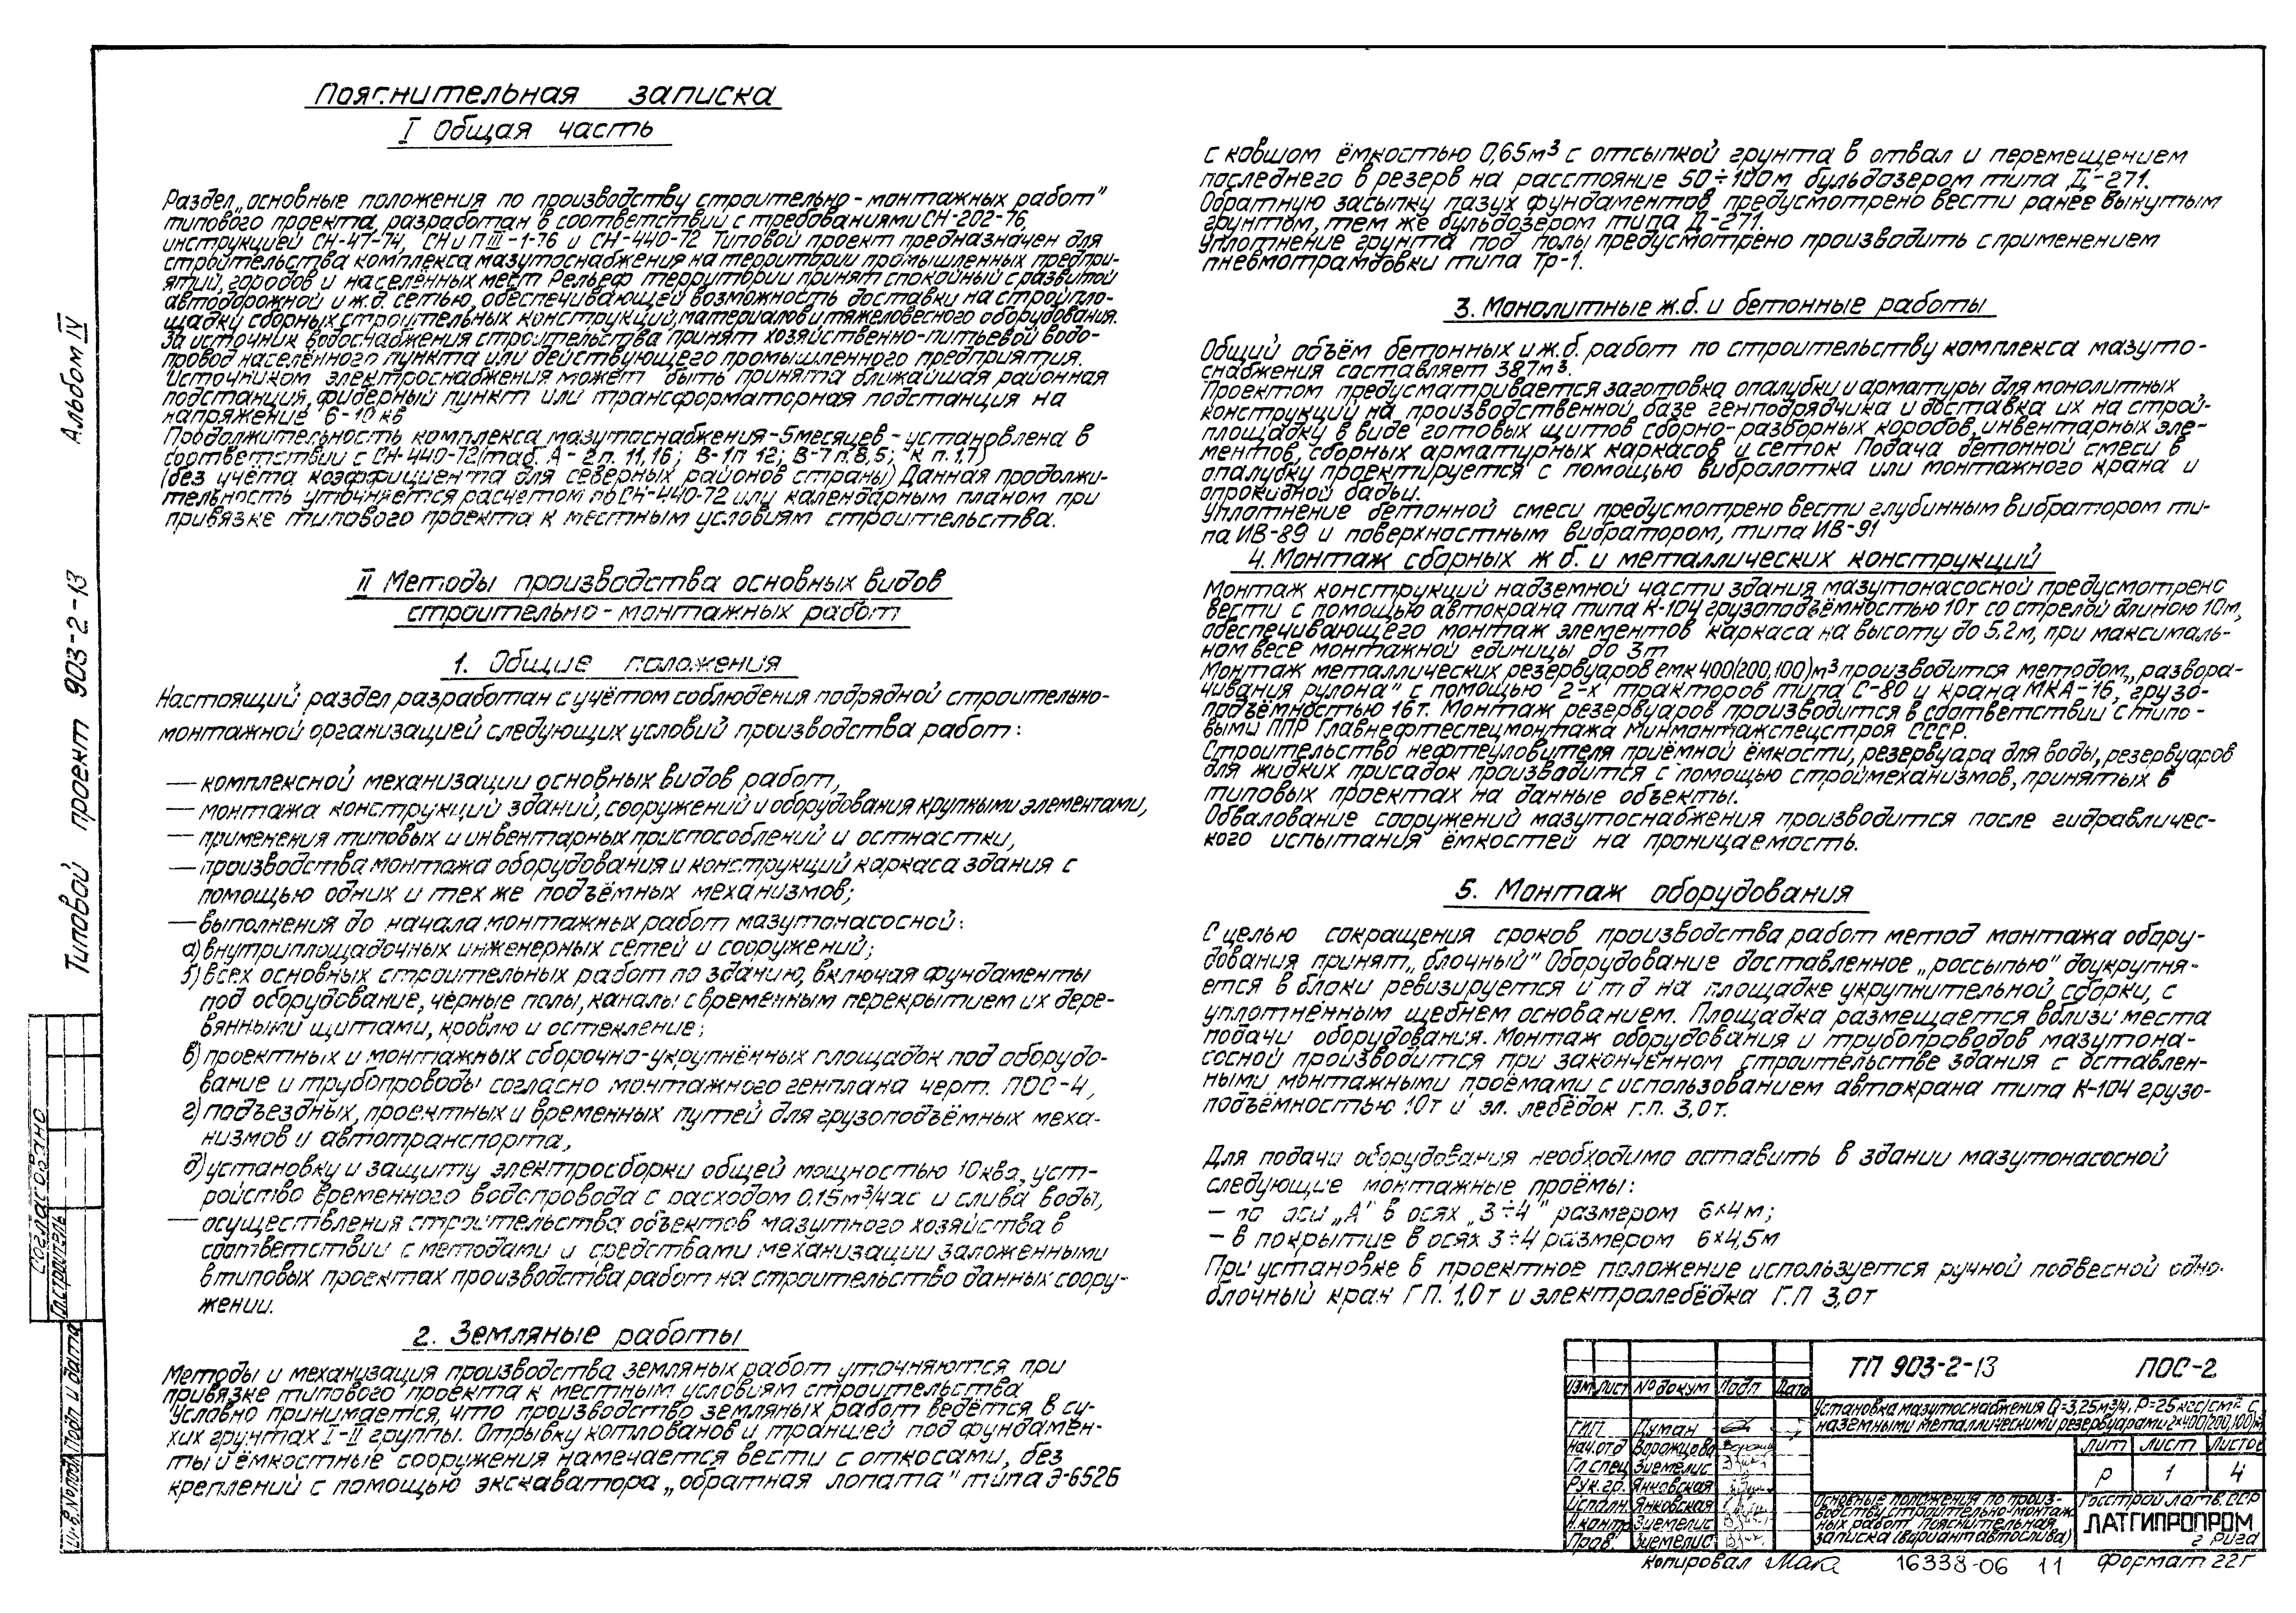 Пояснительная записка
I Общая часть
Раздел „основные положения по производству строительно-монтажных работ"
типового проекта, разработан в соответствии с требованиями СН-202-76,
инструкцией СН-47-74, СНиП III-1-76 и СН-440-72 Типовой проект предназначен для
строительства комплекса мазутоснабжения на территории промышленных предпри-
ятий, городов и населённых мест Рельеф территории принят спокойный с развитой
автодорожной и ж.д. сетью, обеспечивающей возможность доставки на стройпло-
щадку сборных строительных конструкций, материалов и тяжеловесного оборудования.
За источник водоснабжения строительства принят хозяйственно-питьевой водо-
провод населённого пункта или действующего промышленного предприятия.
Источником электроснабжения может быть принята ближайшая районная
подстанция, фидерный пункт или трансформаторная подстанция на
напряжение 6-10 кв
Продолжительность комплекса мазутоснабжения-5месяцев-установлена в
соответствии с СН-440-72(таб. А-2п. 11,16; В-1п 12; В-7 п.8,5; К п.1,7)
(без учета коэффициента для северных районов страны) Данная продолжи-
тельность уточняется расчетом по СН-440-72 или календарным планом при
привязке типового проекта к местным условиям строительства.
II Методы производства основных видов
строительно-монтажных работ
1. Общие положения
Настоящий раздел разработан с учётом соблюдения подрядной строительно-
монтажной организацией следующих условий производства работ:
— комплексной механизации основных видов работ,
— монтажа конструкций зданий, сооружений и оборудования крупными элементами,
— применения типовых и инвентарных приспособлений и остнастки,
— производства монтажа оборудования и конструкций каркаса здания с
помощью одних и тех же подъёмных механизмов;
— выполнения до начала монтажных работ мазутонасосной:
а) внутриплощадочных инженерных сетей и сооружений;
б) всех основных строительных работ по зданию, включая фундаменты
под оборудование, черные полы, каналы с временным перекрытием их дере-
вянными щитами, кровлю и остекление;
в) проектных и монтажных сборочно-укрупнённых площадок под оборудо-
вание и трубопроводы согласно монтажного генплана черт. ПОС-4,
г) подъездных, проектных и временных путей для грузоподъёмных меха-
низмов и автотранспорта,
д) установку и защиту электросборки общей мощностью 10ква, уст-
ройство временного водопровода с расходом 0.15м³/час и слива воды,
— осуществления строительства объектов мазутного хозяйства в
соответствии с методами и средствами механизации заложенными
в типовых проектах производства работ на строительство данных соору-
жении.
2. Земляные работы
Методы и механизация производства земляных работ уточняются при
привязке типового проекта к местным условиям строительства
Условно принимается, что производство земляных работ ведётся в су-
хих грунтах I-II группы. Отрывку котлованов и траншей под фундамен-
ты и ёмкостные сооружения намечается вести с откосами, без
креплений с помощью экскаватора „обратная лопата" типа Э-652Б
с ковшом ёмкостью 0,65м³ с отсыпкой грунта в отвал и перемещением
последнего в резерв на расстояние 50÷100м бульдозером типа Д-271.
Обратную засыпку пазух фундаментов предусмотрено вести ранее вынутым
грунтом, тем же бульдозером типа Д-271.
Уплотнение грунта под полы предусмотрено производить с применением
пневмотрамбовки типа Тр-1.
3. Монолитные ж.б. и бетонные работы
Общий объём бетонных и ж.б. работ по строительству комплекса мазуто-
снабжения составляет 387м³.
Проектом предусматривается заготовка опалубки и арматуры для монолитных
конструкций на производственной базе генподрядчика и доставка их на строй-
площадку в виде готовых щитов сборно-разборных коробов, инвентарных эле-
ментов, сборных арматурных каркасов и сеток Подача бетонной смеси в
опалубку проектируется с помощью вибролотка или монтажного крана и
опрокидной бадьи.
Уплотнение бетонной смеси предусмотрено вести глубинным вибратором ти-
па ИВ-89 и поверхностным вибратором, типа ИВ-91
4. Монтаж сборных ж б. и металлических конструкций
Монтаж конструкций надземной части здания мазутонасосной предусмотрено
вести с помощью автокрана типа К-104 грузоподъёмностью 10т со стрелой длиною 10м,
обеспечивающего монтаж элементов каркаса на высоту до 5.2м, при максималь-
ном весе монтажной единицы до 3т
Монтаж металлических резервуаров емк 400(200,100)м³ производится методом „развора-
чивания рулона" с помощью 2-х тракторов типа С-80 и крана МКА-16, грузо-
подъёмностью 16т. Монтаж резервуаров производится в соответствии с типо-
выми ППР Главнефтеспецмонтажа Минмонтажспецстроя СССР.
Строительство нефтеуловителя приёмной ёмкости, резервуара для воды, резервуаров
для жидких присадок производится с помощью строймеханизмов, принятых в
типовых проектах на данные объекты.
Обвалование сооружений мазутоснабжения производится после гидравличес-
кого испытания ёмкостей на проницаемость.
5. Монтаж оборудования
С целью сокращения сроков производства работ метод монтажа обору-
дования принят „блочный" Оборудование доставленное „россыпью" доукрупня-
ется в блоки ревизируется и т д на площадке укрупнительной сборки, с
уплотнённым щебнем основанием. Площадка размещается вблизи места
подачи оборудования. Монтаж оборудования и трубопроводов мазутона-
сосной производится при законченном строительстве здания с оставлен-
ными монтажными проёмами с использованием автокрана типа К-104 грузо-
подъёмностью 10т и эл. лебёдок г.п. 3,0т.
Для подачи оборудования необходимо оставить в здании мазутонасосной
следующие монтажные проёмы:
— по оси „А" в осях „3÷4" размером 6×4м;
— в покрытие в осях 3÷4 размером 6×4,5м
При установке в проектное положение используется ручной подвесной одно-
блочный кран Г.П. 1,0т и электролебёдка Г.П 3,0т
Альбом IV
Типовой проект 903-2-13
Согласовано
Гл.строитель
Инв.№подл. Подп и дата
ТП 903-2-13 ПОС-2
Изм Лист № докум Подп Дата
Установка мазутоснабжения Q=3,25м³/ч, Р=25 кгс/см² с
наземными металлическими резервуарами 2×400(200,100)м³
ГИП Думан
Нач.отд Ворожцова
Гл спец Зиемелис
Рук.гр. Янковская
Исполн. Янковская
Н.контр Зиемелис
Пров. Зиемелис
Лит Лист Листов
Р 1 4
Основные положения по произ-
водству строительно-монтаж
ных работ Пояснительная
записка (вариант автослива)
Госстрой Латв.ССР
ЛАТГИПРОПРОМ
г Рига
Копировал 16338-06 11 Формат 22г